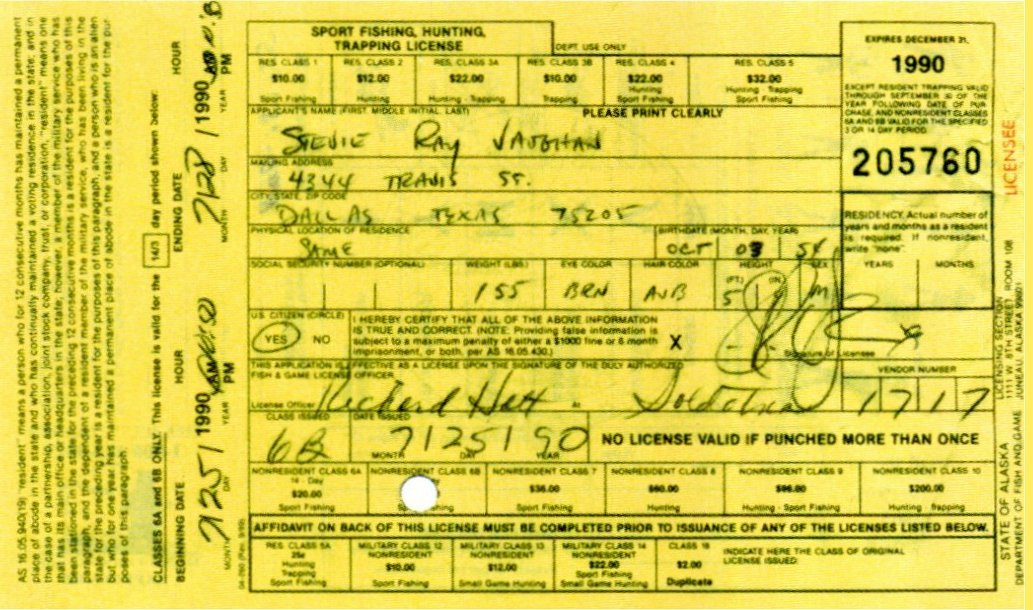 SPORT FISHING, HUNTING,
TRAPPING LICENSE
DEPT. USE ONLY
RES. CLASS 1 RES. CLASS 2 RES. CLASS 3A RES. CLASS 3B RES. CLASS 4 RES. CLASS 5
$10.00 $12.00 $22.00 $10.00 $22.00 $32.00
Sport Fishing Hunting Hunting - Trapping Trapping Hunting Sport Fishing Hunting - Trapping Sport Fishing
APPLICANT'S NAME (FIRST, MIDDLE INITIAL, LAST) PLEASE PRINT CLEARLY
STEVIE RAY VAUGHAN
MAILING ADDRESS
4344 TRAVIS ST.
CITY, STATE, ZIP CODE
DALLAS TEXAS 75205
PHYSICAL LOCATION OF RESIDENCE BIRTHDATE (MONTH, DAY, YEAR)
SAME OCT 03 54
SOCIAL SECURITY NUMBER (OPTIONAL) WEIGHT (LBS.) EYE COLOR HAIR COLOR HEIGHT SEX
155 BRN AUB (FT) 5 (IN) M
U.S. CITIZEN (CIRCLE)
YES NO
I HEREBY CERTIFY THAT ALL OF THE ABOVE INFORMATION
IS TRUE AND CORRECT. (NOTE: Providing false information is
subject to a maximum penalty of either a $1000 fine or 6 month
imprisonment, or both, per AS 16.05.430.)
X
Signature of Licensee
THIS APPLICATION IS EFFECTIVE AS A LICENSE UPON THE SIGNATURE OF THE DULY AUTHORIZED
FISH & GAME LICENSE OFFICER.
License Officer Richard Hall At Soldotna
VENDOR NUMBER
1717
CLASS ISSUED DATE ISSUED
6B 7 25 90
MONTH DAY YEAR
NO LICENSE VALID IF PUNCHED MORE THAN ONCE
NONRESIDENT CLASS 6A NONRESIDENT CLASS 6B NONRESIDENT CLASS 7 NONRESIDENT CLASS 8 NONRESIDENT CLASS 9 NONRESIDENT CLASS 10
14 - Day
$20.00 $36.00 $60.00 $96.00 $200.00
Sport Fishing Sport Fishing Sport Fishing Hunting Hunting - Sport Fishing Hunting - Trapping
AFFIDAVIT ON BACK OF THIS LICENSE MUST BE COMPLETED PRIOR TO ISSUANCE OF ANY OF THE LICENSES LISTED BELOW.
RES. CLASS 5A
25¢
Hunting
Trapping
Sport Fishing
MILITARY CLASS 12
NONRESIDENT
$10.00
Sport Fishing
MILITARY CLASS 13
NONRESIDENT
$12.00
Small Game Hunting
MILITARY CLASS 14
NONRESIDENT
$22.00
Sport Fishing
Small Game Hunting
CLASS 16
$2.00
Duplicate
INDICATE HERE THE CLASS OF ORIGINAL
LICENSE ISSUED:
EXPIRES DECEMBER 31,
1990
EXCEPT RESIDENT TRAPPING VALID
THROUGH SEPTEMBER 30 OF THE
YEAR FOLLOWING DATE OF PUR-
CHASE, AND NONRESIDENT CLASSES
6A AND 6B VALID FOR THE SPECIFIED
3 OR 14 DAY PERIOD.
205760
RESIDENCY: Actual number of
years and months as a resident
is required. If nonresident,
write "none".
YEARS MONTHS
LICENSEE
LICENSING SECTION
1111 W. 8TH STREET ROOM 108
JUNEAU, ALASKA 99801
STATE OF ALASKA
DEPARTMENT OF FISH AND GAME
AS 16.05.940(19) "resident" means a person who for 12 consecutive months has maintained a permanent
place of abode in the state and who has continually maintained a voting residence in the state; and in
the case of a partnership, association, joint stock company, trust, or corporation, "resident" means one
that has its main office or headquarters in the state; however, a member of the military service who has
been stationed in the state for the preceding 12 consecutive months is a resident for the purposes of this
paragraph, and the dependent of a resident member of the military service, who has been living in the
state for the preceding year is a resident for the purposes of this paragraph, and a person who is an alien
but who for one year has maintained a permanent place of abode in the state is a resident for the pur-
poses of this paragraph.
CLASSES 6A and 6B ONLY. This license is valid for the 14/3 day period shown below:
BEGINNING DATE HOUR ENDING DATE HOUR
7 25 1990 PM 7 28 1990 PM
MONTH DAY YEAR MONTH DAY YEAR